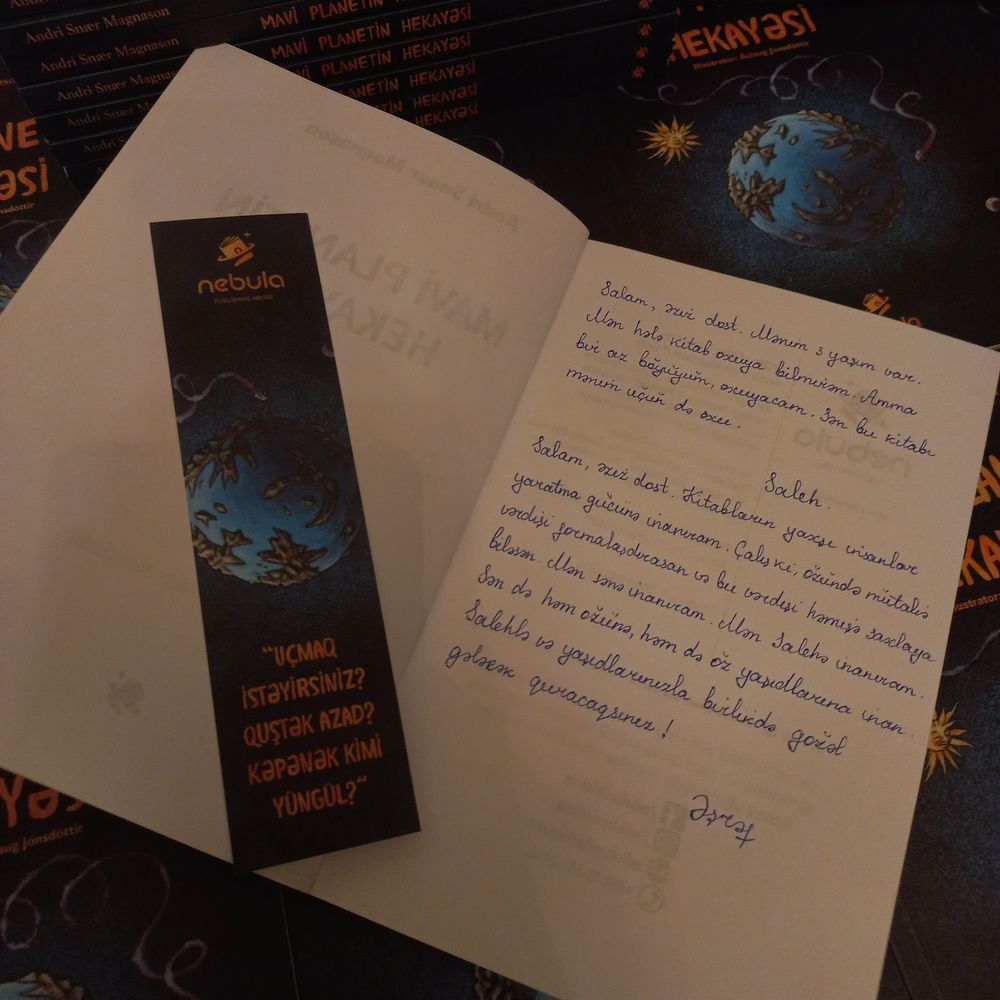 Andri Snær Magnason MAVİ PLANETİN HEKAYƏSİ
Andri Snær Magnason MAVİ PLANETİN HEKAYƏSİ
Andri Snær Magnason MAVİ PLANETİN HEKAYƏSİ
Andri Snær Magnason MAVİ PLANETİN HEKAYƏSİ
HEKAYƏSİ
Illustrator: Áslaug Jónsdóttir
Andri Snær Magnason
MAVİ PLANETİN
HEKAYƏSİ
nebula
PUBLISHING HOUSE
"UÇMAQ
İSTƏYİRSİNİZ?
QUŞTƏK AZAD?
KƏPƏNƏK KİMİ
YÜNGÜL?"
Salam, əziz dost. Mənim 3 yaşım var.
Mən hələ kitab oxuya bilmirəm. Amma
bir az böyüyüm, oxuyacam. Sən bu kitabı
mənim üçün də oxu.
Saleh.
Salam, əziz dost. Kitabların yaxşı insanlar
yaratma gücünə inanıram. Çalış ki, özündə mütaliə
vərdişi formalaşdırasan və bu vərdişi həmişə saxlaya
biləsən. Mən sənə inanıram. Mən Salehə inanıram.
Sən də həm özünə, həm də öz yaşıdlarına inan.
Salehlə və yaşıdlarınızla birlikdə gözəl
gələcək quracaqsınız!
nebula